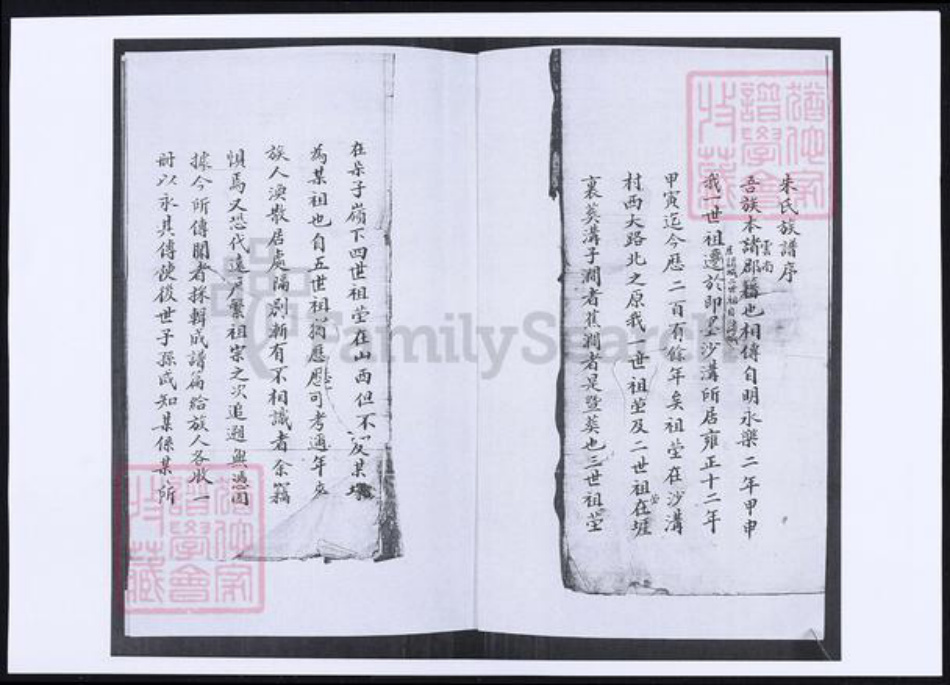 朱氏族譜序
吾族本諸郡籍也相傳自明永樂二年甲申
雲南
我一世祖遷於即墨沙溝所居雍正十二年
甲寅迄今歷二百有餘年矣祖塋在沙溝
村西大路北之原我一世祖塋及二世祖在堐
塋
裏葬溝子澗者蕉澗者是暨葬也三世祖塋
在朵子嶺下四世祖塋在山西但不
某
為某祖也自五世祖
歷歷可考通年
族人渙散居處隔別漸有不相識者余竊
惧焉又恐代遠
繁祖宗之次追遡無憑因
據今所傳聞者採輯成譜
給族人各收一
冊以永其傳
後世子孫咸知某係某所
猶他家
譜學會
收藏
猶他家
譜學會
收藏
FamilySearch